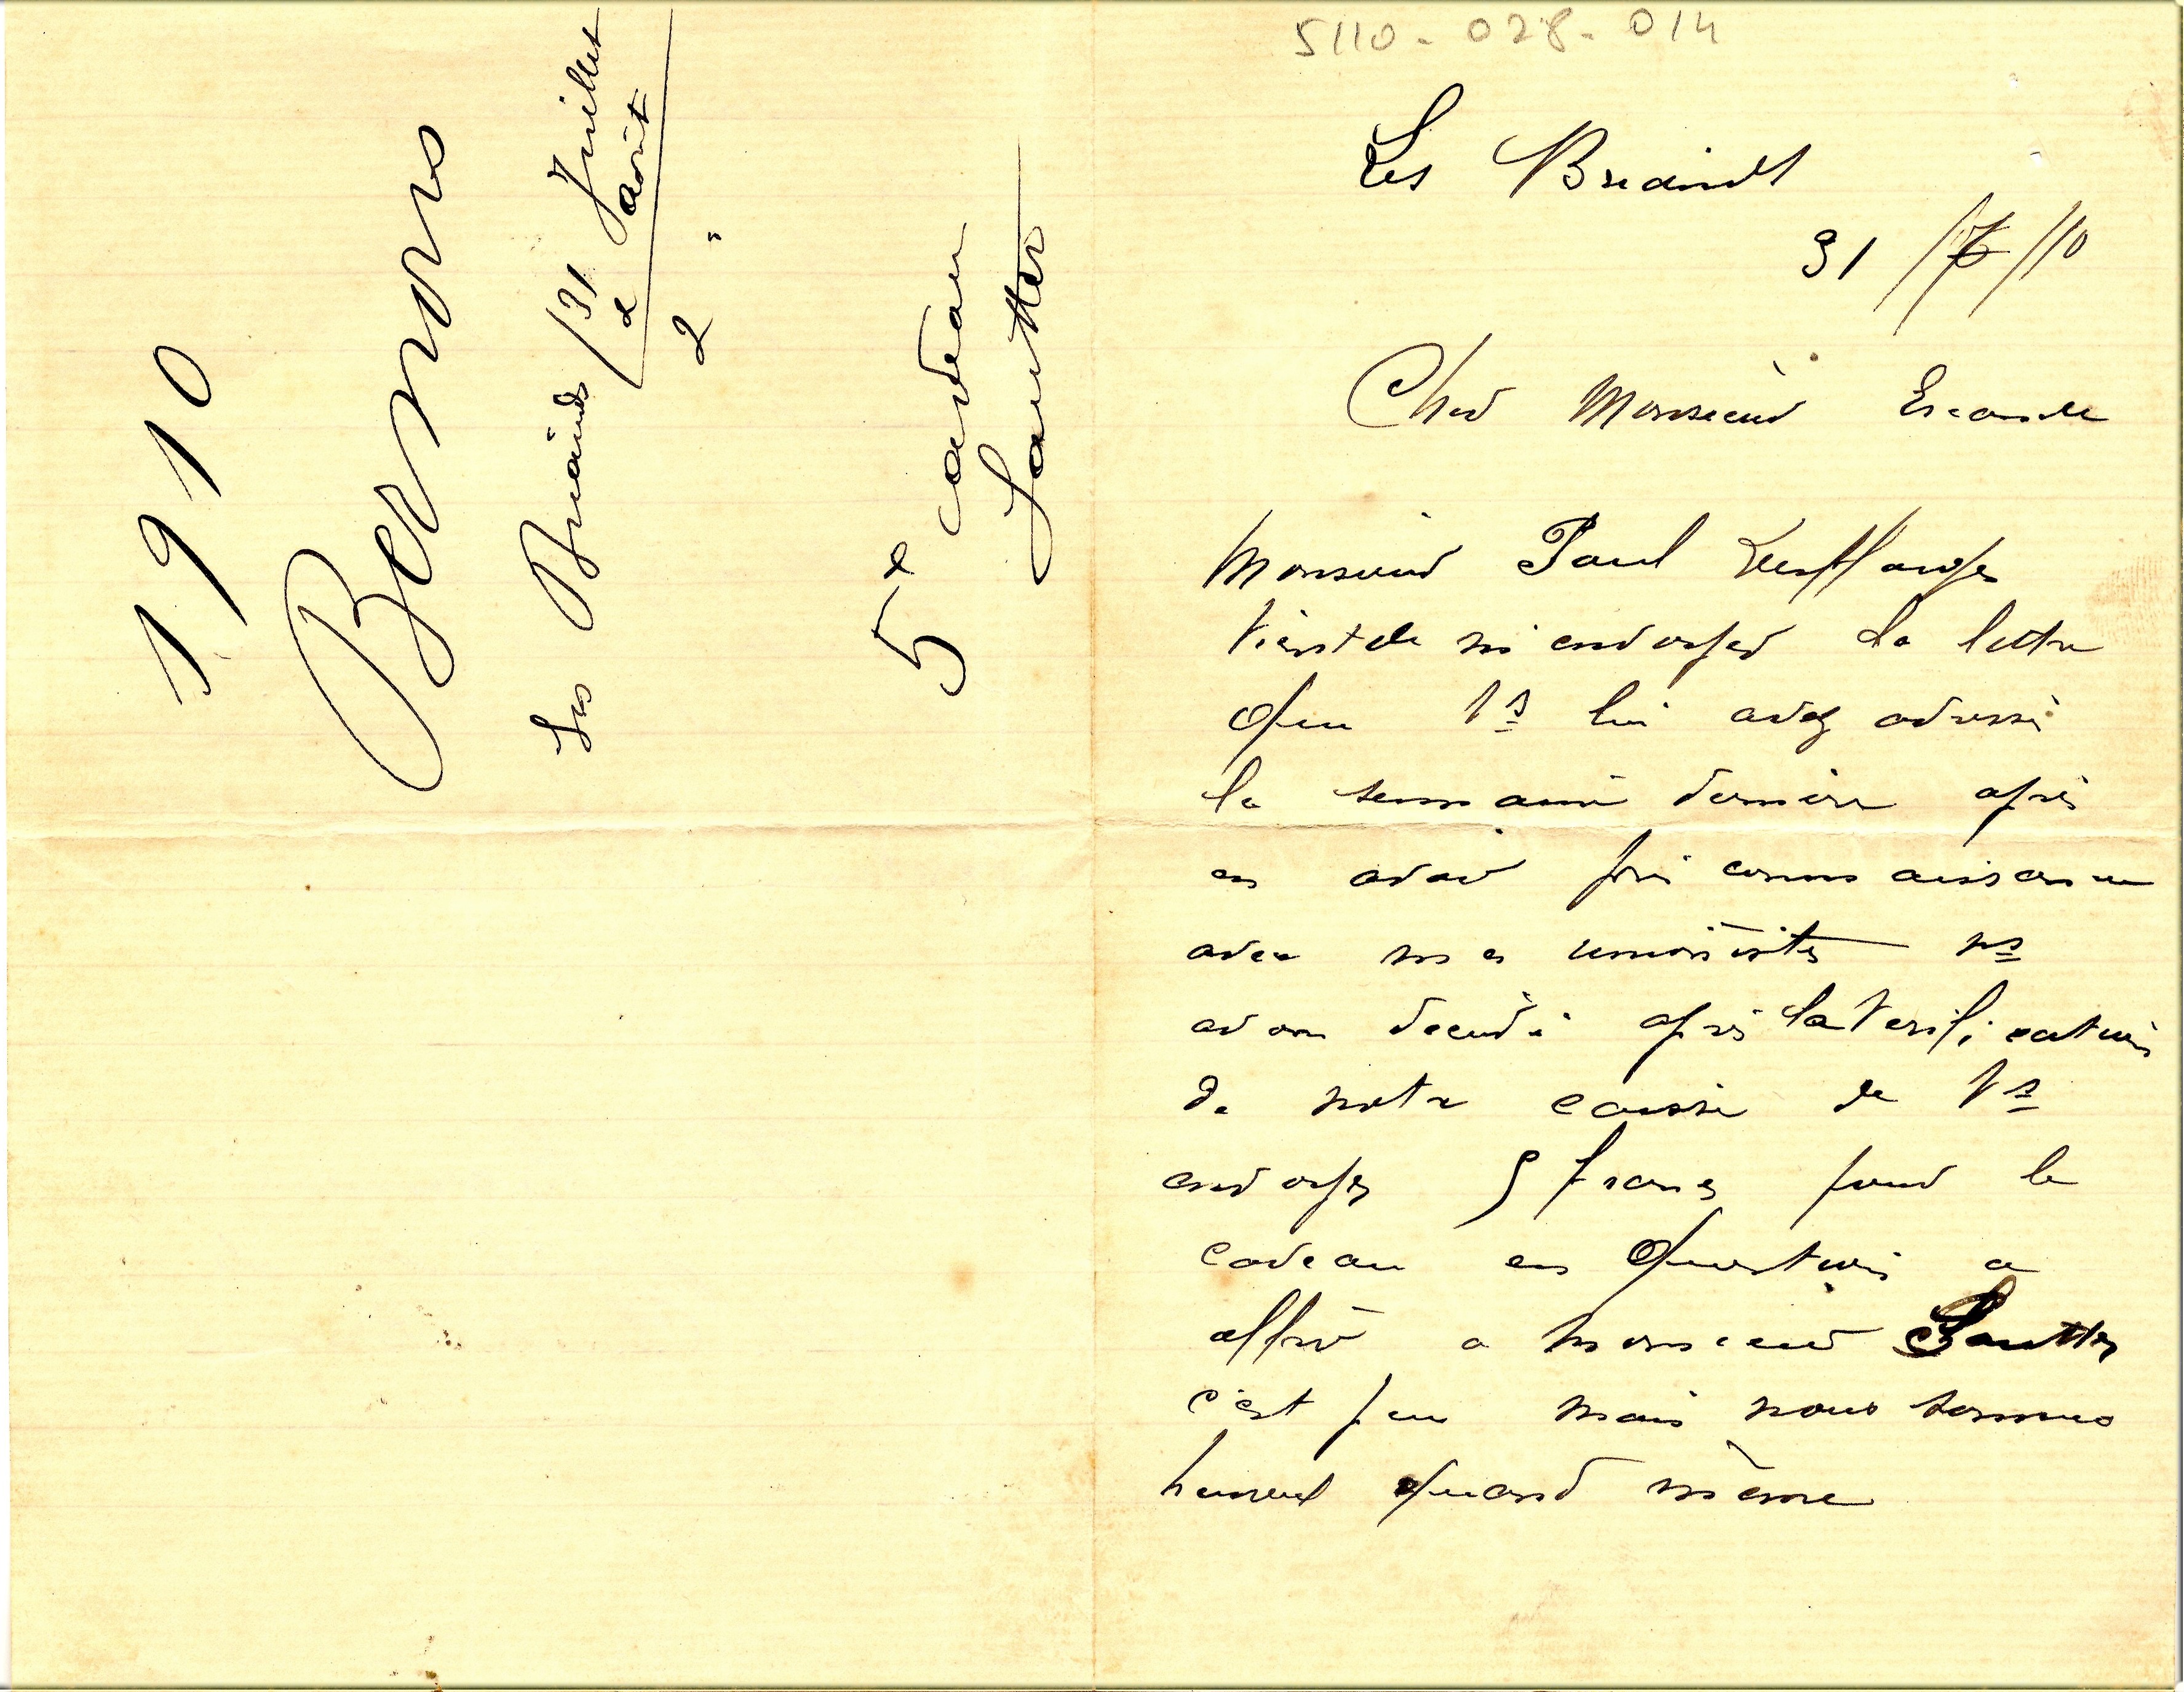 5110-028-014
Les Briands
31/7/10
Cher Monsieur Escande
Monsieur Paul
Vient de m'envoyer la lettre
que Vs lui avez adressé
la semmaine dernière après
en avoir pris connaissance
avec mes unionistes ns
avons decidé après la Verification
de notre caisse de Vs
envoyer 5 francs pour le
cadeau en question a
offrir a monsieur Sautter
c'est peu mais nous sommes
heureux quand même
1910
Bernons
Les Briands / 31 Juillet
2 août
2 "
5x cadeau
Sautter